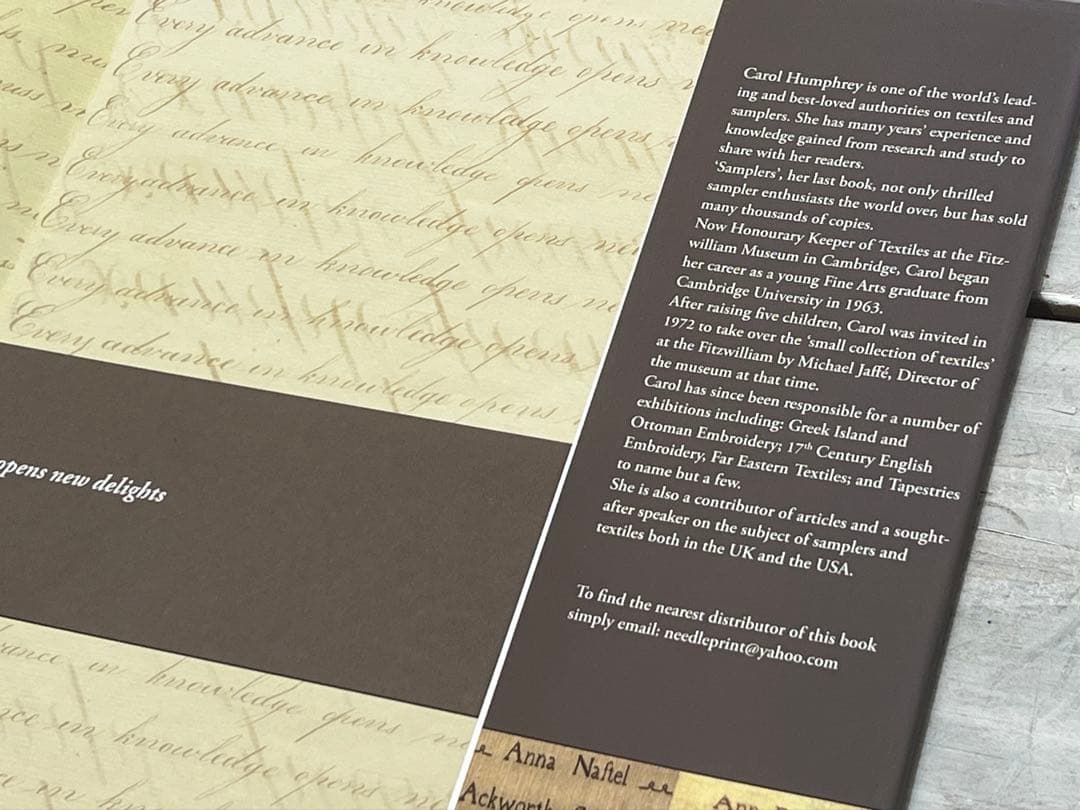 knowledge opens new
Every advance in knowledge opens
Every advance in knowledge opens n
Every advance in knowledge opens
Every advance in knowledge opens ne
Every advance in knowledge opens, ne
Every advance in knowledge opens ne
Every advance in knowledge opens
Every advance in knowledge opens
opens new delights
in knowledge opens ne
in knowledge opens
Carol Humphrey is one of the world's lead-
ing and best-loved authorities on textiles and
samplers. She has many years' experience and
knowledge gained from research and study to
share with her readers.
'Samplers', her last book, not only thrilled
sampler enthusiasts the world over, but has sold
many thousands of copies.
Now Honourary Keeper of Textiles at the Fitz-
william Museum in Cambridge, Carol began
her career as a young Fine Arts graduate from
Cambridge University in 1963.
After raising five children, Carol was invited in
1972 to take over the 'small collection of textiles'
at the Fitzwilliam by Michael Jaffé, Director of
the museum at that time.
Carol has since been responsible for a number of
exhibitions including: Greek Island and
Ottoman Embroidery; 17th Century English
Embroidery, Far Eastern Textiles; and Tapestries
to name but a few.
She is also a contributor of articles and a sought-
after speaker on the subject of samplers and
textiles both in the UK and the USA.
To find the nearest distributor of this book
simply email: needleprint@yahoo.com
Anna Naftel
Ackworth
Ann